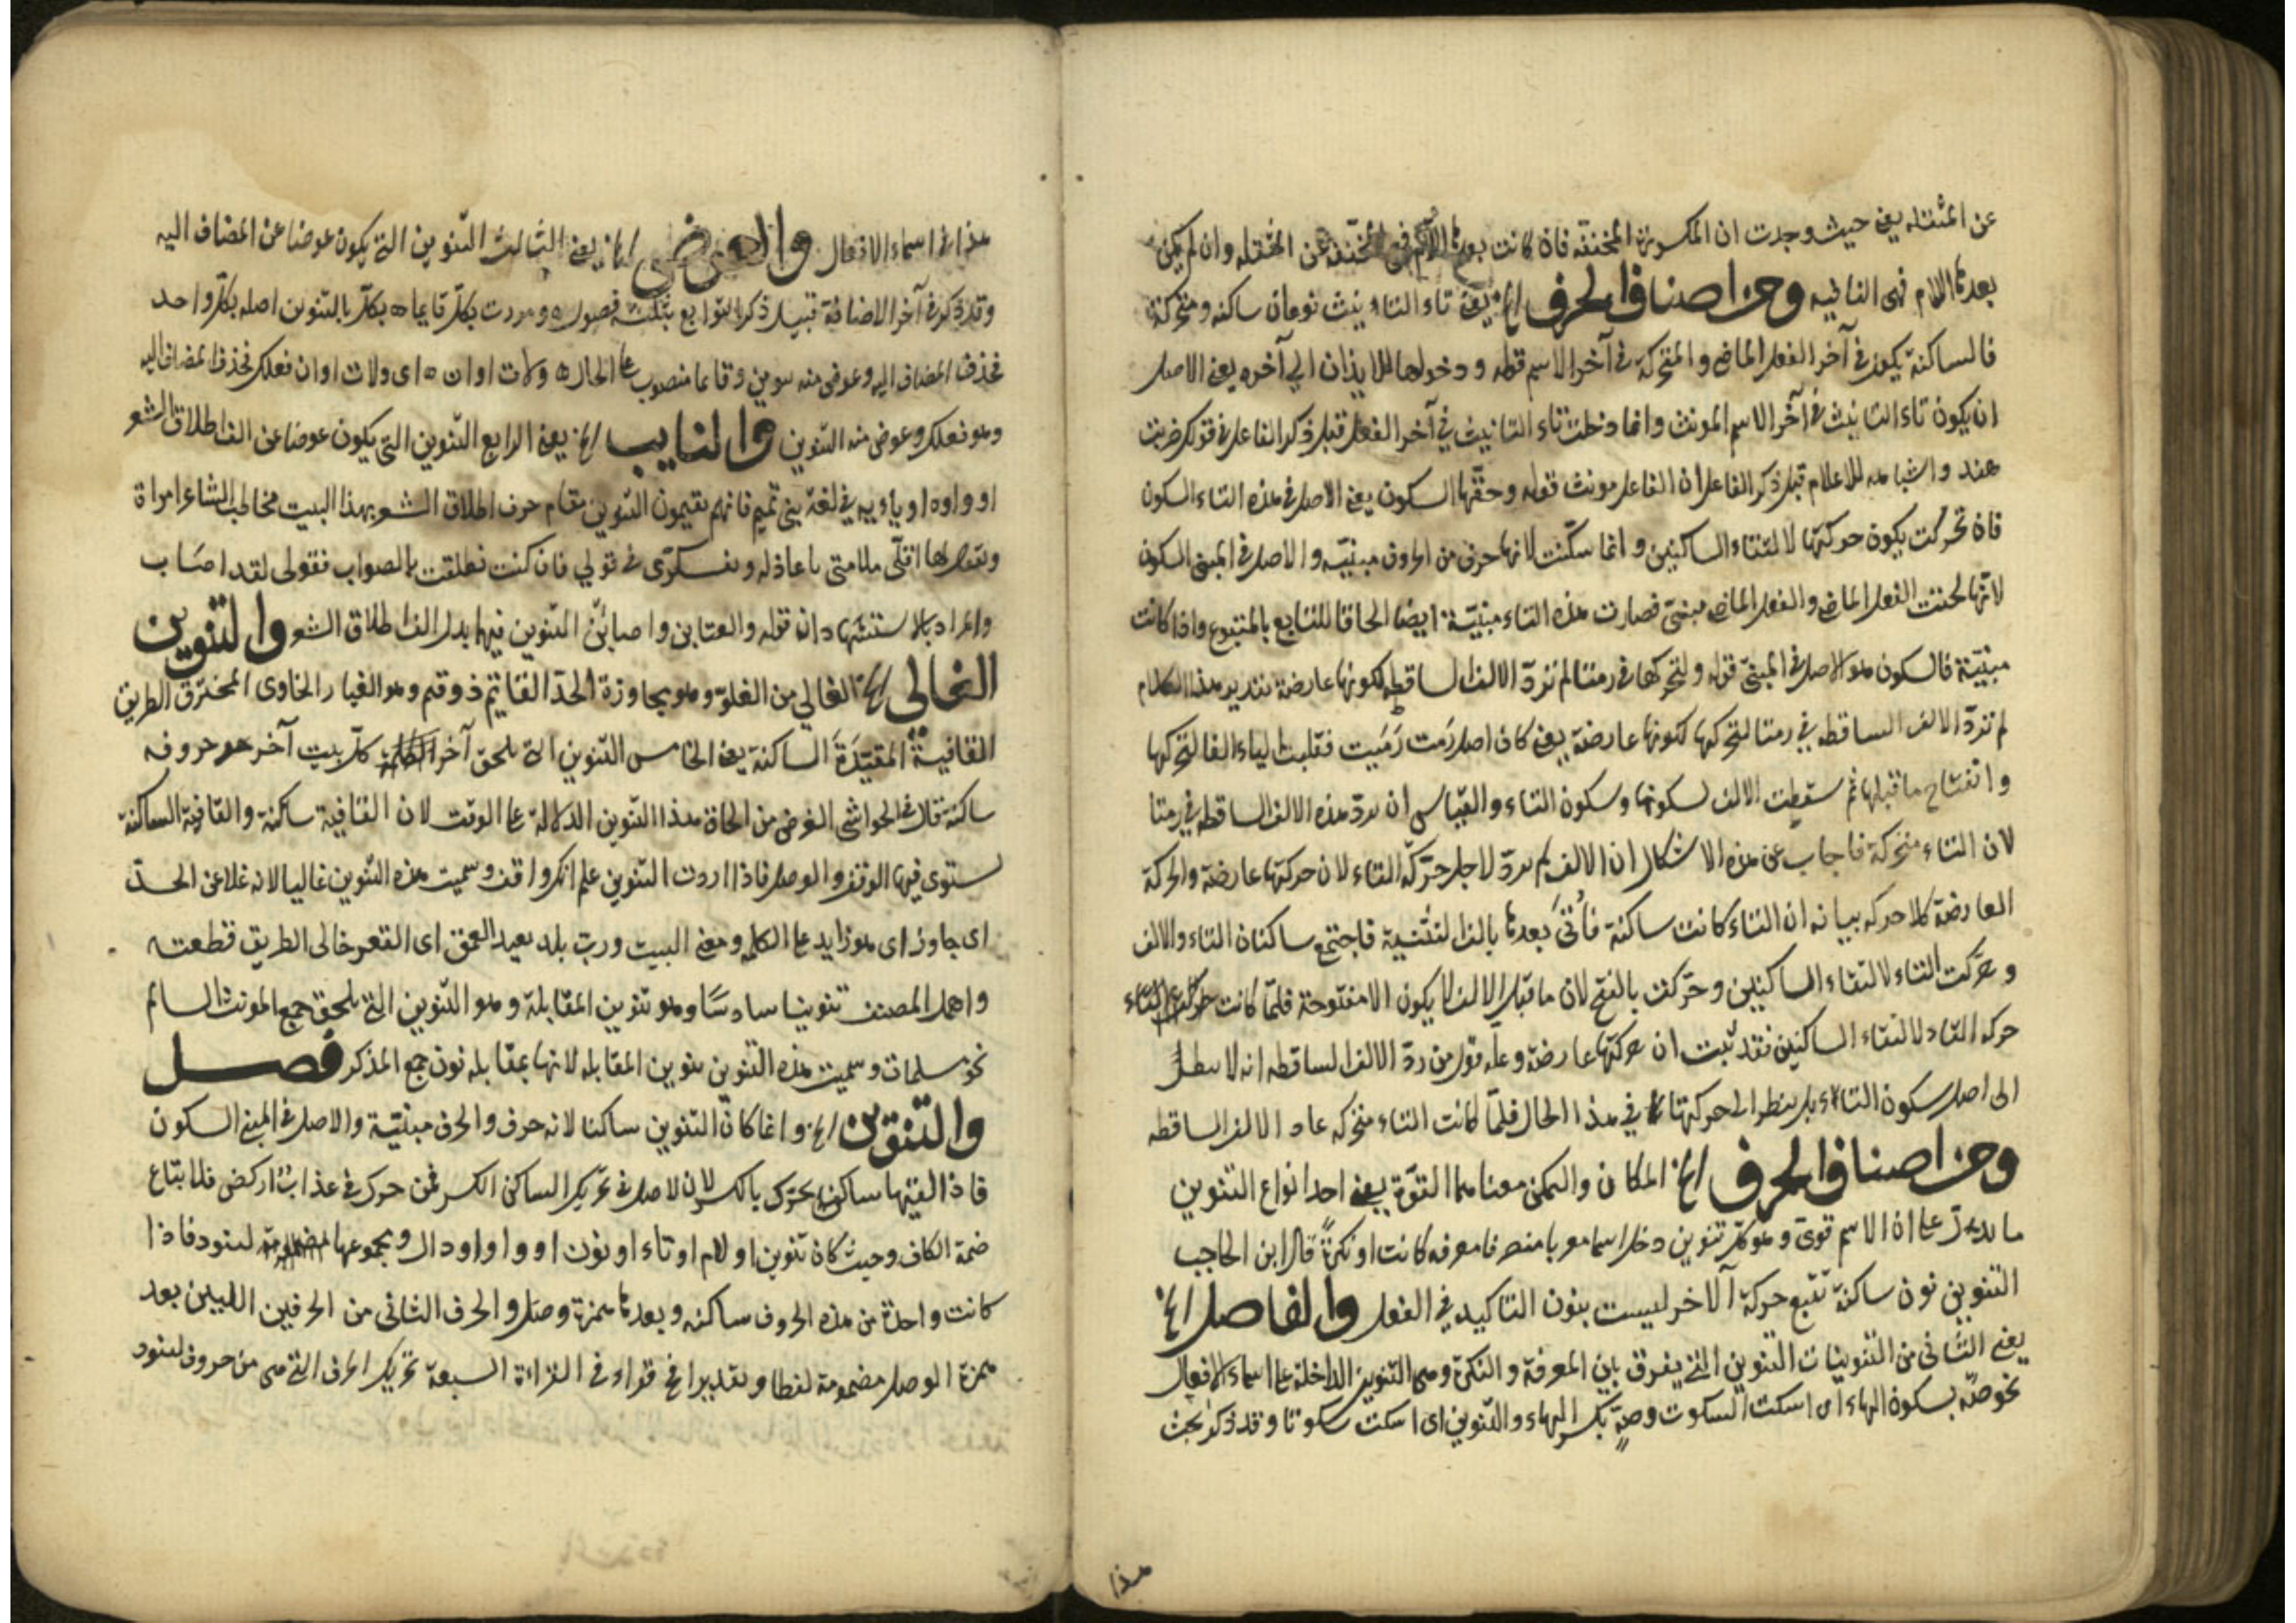 عن المثقله يعنى حيث وجدت ان المكسورة المخففه فان كانت بعدها اللام فهى المخففه عن المثقله وان لم يكن
بعدها اللام فهى النافيه ومن اصناف الحرف الخ يعنى تاء التاءنيث نوعان ساكنه ومتحركة
فالساكنة يكون في آخر الفعل الماضى والمتحركة في آخر الاسم قوله ودخولها للايذان الى آخره يعنى الاصل
ان يكون تاء التانيث في آخر الاسم المونث وانما دخلت تاء التانيث في آخر الفعل قبل ذكر الفاعل في قولك ضربت
هند واشباهه للاعلام قبل ذكر الفاعل ان الفاعل مونث قوله وحقها السكون يعنى الاصل في هذه التاء السكون
فان تحركت يكون حركتها لالتقاء الساكنين وانما سكنت لانها حرف من الحروف مبنيه والاصل في المبنى السكون
لانها لحقت الفعل الماضى والفعل الماضى مبنى فصارت هذه التاء مبنية ايضا الحاقا للتابع بالمتبوع واذا كانت
مبنية فالسكون هو الاصل في المبنى قوله ولتحركها في رمتا لم تردّ الالف الساقطه لكونها عارضة تقدير هذا الكلام
لم تردّ الالف الساقطه في رمتا لتحركها لكونها عارضة يعنى كان اصل رَمت رَمَيت فقلبت الياء الفا لتحركها
وانفتاح ما قبلها ثم سقطت الالف لسكونها وسكون التاء والقياس ان تردّ هذه الالف الساقطه في رمتا
لان التاء متحركة فاجاب عن هذه الاشكال ان الالف لم تردّ لاجل حركة التاء لان حركتها عارضة والحركة
العارضة كلا حركه بيانه ان التاء كانت ساكنة فأتى بعدها بالف التثنية فاجتمع ساكنان التاء والالف
وحركت التاء لالتقاء الساكنين وحركت بالفتح لان ما قبل الالف لا يكون الا مفتوحة فلمّا كانت
حركه التاء لالتقاء الساكنين فقد ثبت ان حركتها عارضة وعلة قول من ردّ الالف الساقطه انه لا ينظر
الى اصل سكون التاء بل ينظر الى حركتها في هذا الحال فلمّا كانت التاء متحركه عاد الالف الساقطه
ومن اصناف الحرف الخ المكان والتمكن معناهما القوّة يعنى احد انواع التنوين
ما يدل على ان الاسم قوى وهو كل تنوين دخل اسما معربا منصرفا معرفه كانت او نكرةً قال ابن الحاجب
التنوين نون ساكنة تتبع حركة الآخر ليست بنون التاكيد في الفعل والفاصل الخ
يعنى الثانى من التنوينات التنوين التى يفرق بين المعرفة والنكرة وهى التنوين الداخلة على اسماء الافعال
نحو صه بسكون الهاء اى اسكت السكوت وصهٍ بكسر الهاء والتنوين اى اسكت سكوتا وقد ذكر بحث
هذا
هذا في اسماء الافعال والعوض الخ يعنى الثالث التنوين التى يكون عوضا عن المضاف اليه
وقد ذكر في آخر الاضافة قبيل ذكر التوابع بثلثه فصول ٥ ومررت بكل قايما ٥ بكلّ بالتنوين اصله بكل واحد
فحذف المضاف اليه وعوض منه تنوين وقايما منصوب على الحال ٥ ولات اوان ٥ اى ولات اوان فعلك فحذف المضاف اليه
وهو فعلك وعوض منه التنوين والنايب الخ يعنى الرابع التنوين التى يكون عوضا عن الف اطلاق الشعر
او واوه او ياءيه في لغة بنى تميم فانهم يقيمون التنوين مقام حرف اطلاق الشعر بهذا البيت مخاطب الشاعر امراة
ويقول لها اقلّى ملامتى يا عاذله وتفكرى في قولي فان كنت نطلقت بالصواب فقولى لقد اصَاب
والمراد بالاستشهاد ان قوله والعتابن واصابنْ التنوين فيها بدل الف اطلاق الشعر والتنوين
الغالى الخ الغالي من الغلوّ وهو مجاوزة الحدّ القاتم ذو قتم وهو الغبار الخاوى المخترق الطريق
القافيةُ المقيّدَة الساكنة يعنى الخامس التنوين التى يلحق آخر كلّ بيت آخر حروفه
ساكنة قال في الحواشى الغرض من الحاق هذا التنوين الدلالة على الوقت لان القافية ساكنة والقافية الساكنة
يستوى فيها الوقف والوصل فاذا اردت التنوين علم انك واقف وسميت هذه التنوين غاليا لانه غلا عن الحدّ
اى جاوز اى هو زايد على الكلمه ومعنى البيت وربّ بلد بعيد العمق اى القعر خالى الطريق قطعته
واهمل المصنف تنوينا سادسًا وهو تنوين المقابلة وهو التنوين التى يلحق جمع المونث السالم
نحو مسلمات وسميت هذه التنوين تنوين المقابله لانها بمقابله نون جمع المذكر فصل
والتنوين الخ وانما كان التنوين ساكنا لانه حرف والحرف مبنيّة والاصل في المبنى السكون
فاذا لقيتها ساكن يحرّك بالكسر لان الاصل في تحريك الساكن الكسر فمن حرك في عذابٌ اركض فلا تباع
ضمة الكاف وحيث كان تنوين او لام او تاء او نون او واو او دال ومجموعها لتنود فاذا
كانت واحدة من هذه الحروف ساكنه وبعدها همزة وصل والحرف الثانى من الحرفين اللذين بعد
همزة الوصل مضمومة لفظا وتقديرا في قراءة في القراءة السبعة تحريك الحرف التى هى من حروف لتنود